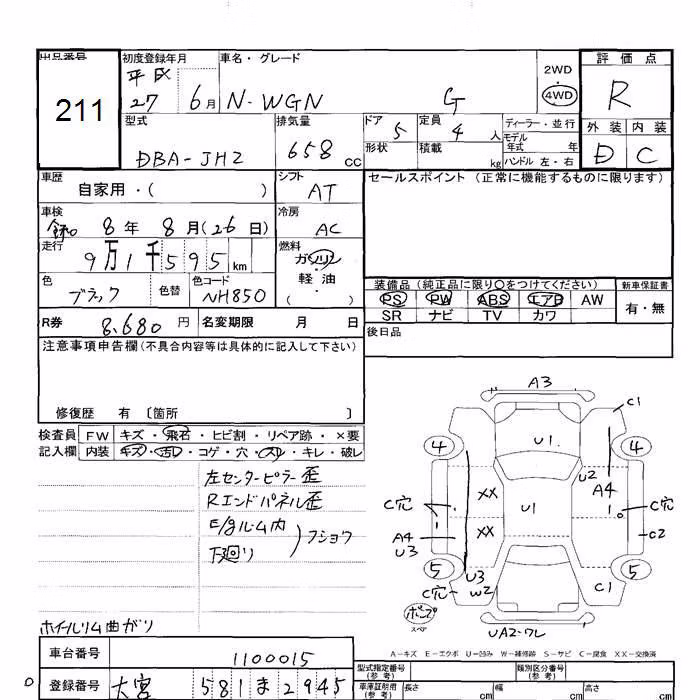 出品番号
211
初度登録年月
平成
27 6月
車名・グレード
N-WGN G
2WD
4WD
評価点
R
型式
DBA-JH2
排気量
658 cc
ドア
5
定員
4 人
形状
積載
kg
ディーラー・並行
モデル年式 年
ハンドル 左・右
外装 内装
D C
車歴
自家用・( )
シフト
AT
セールスポイント(正常に機能するものに限ります)
車検
令和 8年 8月(26日)
冷房
AC
走行
9万1千595 km
燃料
ガソリン
軽・油
( )
色
ブラック
色替
色コード
NH850
装備品(純正品に限り○をつけてください)
新車保証書
PS PW ABS エアB AW
SR ナビ TV カワ
有・無
R券 8,680 円
名変期限 月 日
後日品
注意事項申告欄(不具合内容等は具体的に記入して下さい)
修復歴 有 〔箇所 〕
検査員
記入欄
FW キズ・飛石・ヒビ割・リペア跡・×要
内装 キズ・汚レ・コゲ・穴・スレ・キレ・破レ
左センターピラー歪
Rエンドパネル歪
E/gルーム内
下廻り
フショウ
ホイルリム曲がリ
A3
C1
4
U1
4
U2
A4
XX
C穴
U1
C穴
XX
A4
U3
C2
5
U3
5
C穴
W2
C1
ポンプ
スペア
UA2・ワレ
A-キズ E-エクボ U-凹み W-補修跡 S-サビ C-腐食 XX-交換済
車台番号
1100015
登録番号
大宮 581 ま 2945
型式指定番号
(参考)
類別区分番号
(参考)
車庫証明用
(参考)
長さ cm
幅 cm
高さ cm